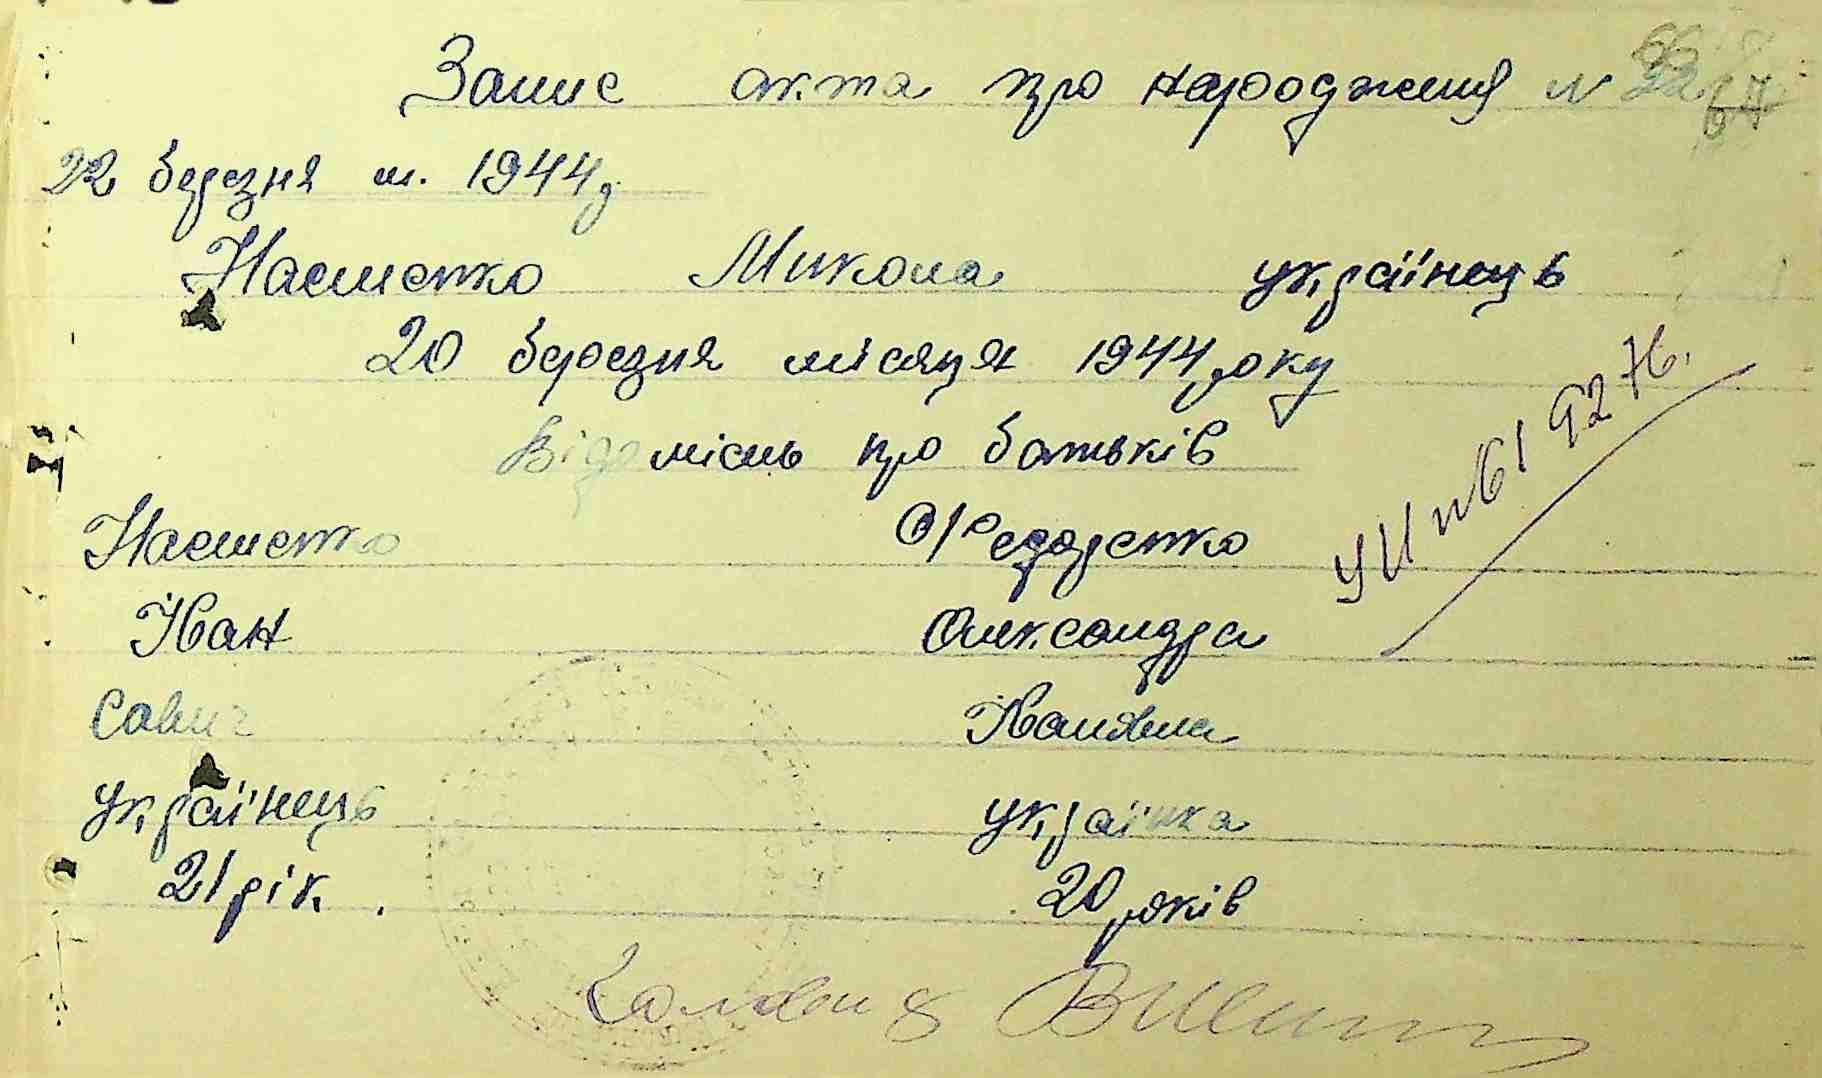 Запис акта про народження N 22
22 березня м. 1944 р.
Наєшенко Микола українець
20 березня місяця 1944 року
Відомість про батьків
Наєшенко Федоренко
Іван Олександра
Савич Іванівна
українець українка
21 рік. 20 років